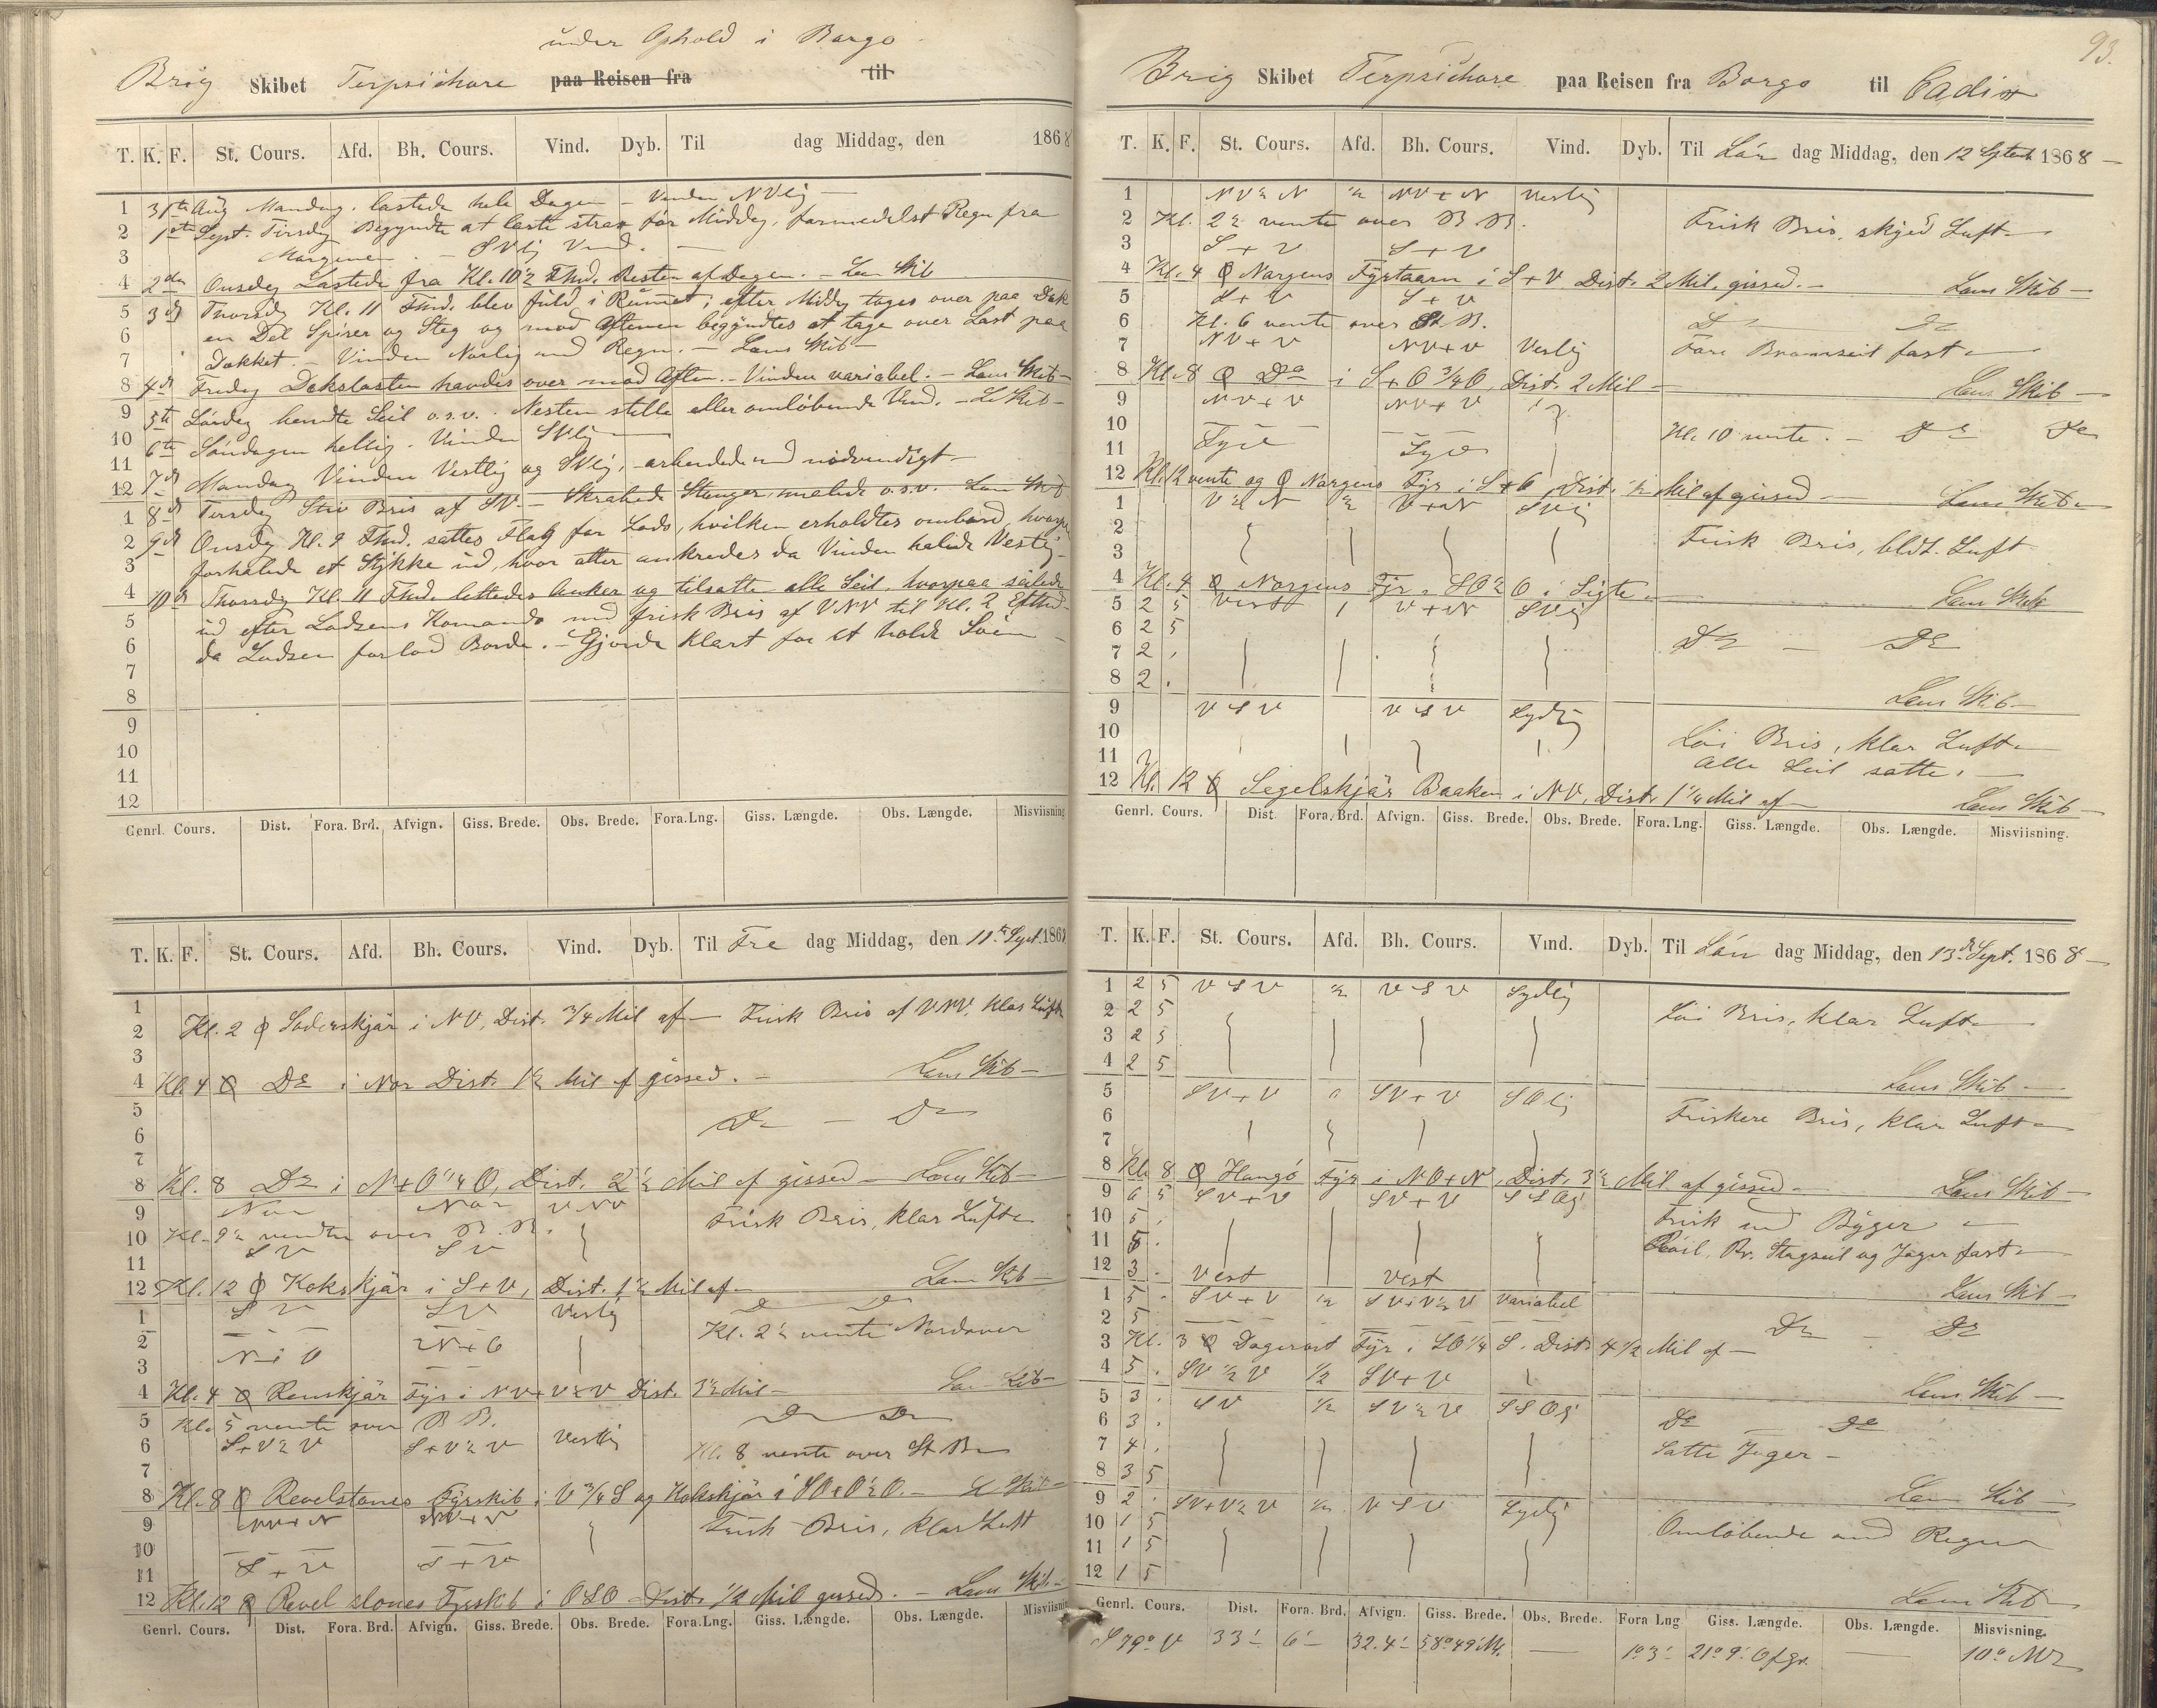 under Ophold i Borgo
Brig Skibet Terpsichore paa Reisen fra til
T. K. F. St. Cours. Afd. Bh. Cours. Vind. Dyb. Til dag Middag, den 1868
1 31te Aug Mandag. lastede hele Dagen – Vinden NVlig –
2 1ste Sept. Tirsdag Begyndte at laste strax før Middag, formedelst Regn fra
3 Morgenen. – SVlig Vind. –
4 2den Onsdag Lastede fra Kl. 10½ Fmd. Resten af Dagen. – Læns Skib
5 3die Thorsdag Kl. 11 Fmd. blev fuld i Rummet; efter Middag toges over paa Dæk
6 en Del Spirer og Steg og mod Aftenen begyndtes at tage over Last paa
7 Dækket – Vinden Norlig med Regn. – Læns Skib –
8 4de Fredag Dækslasten havdes over mod Aften. – Vinden variabel. – Læns Skib –
9 5te Lørdag hendte Seil o.s.v. Nesten stille eller omløbende Vind. – L. Skib –
10 6te Søndagen hellig. Vinden SVlig
11 7de Mandag Vinden Vestlig og SVlig, – arbeidede med nødvendigt –
12 8de Tirsdag Stiv Bris af SV. – Skrabede Stænger, malede o.s.v. Læns Skib
1 9de Onsdag Kl. 9 Fmd. sattes Flag for Lods, hvilken erholdtes ombord, hvorpaa
2 forhalede et Stykke ud, hvor atter ankredes da Vinden halede Vestlig –
3
4 10de Thorsdag Kl. 11 Fmd. lettedes Anker og tilsatte alle Seil, hvorpaa seilede
5 ud efter Lodsens Komando med frisk Bris af VNV til Kl. 2 Eftmd.
6 da Lodsen forlod Borde. – Gjorde klart for at holde Søen –
7
8
9
10
11
12
Genrl. Cours. Dist. Fora. Brd. Afvign. Giss. Brede. Obs. Brede. Fora. Lng. Giss. Længde. Obs. Længde. Misviisning
T. K. F. St. Cours. Afd. Bh. Cours. Vind. Dyb. Til Fre dag Middag, den 11te Sept. 1868
1
2 Kl. 2 Søderskjær i NV, Dist. ¾ Mil af – Frisk Bris af VNV, klar Luft
3
4 Kl. 4 Do i Nor Dist. 1½ Mil af gissed. – Læns Skib –
5 Do – Do
6
7
8 Kl. 8 Do i N+O¼O, Dist. 2½ Mil af gissed – Læns Skib –
9 Nor Nor VNV Frisk Bris, klar Luft –
10 Kl. 9½ vendte over B.B.
11 SV SV
12 Kl. 12 Kokskjær i S+V, Dist. 1½ Mil af – Læns Skib –
1 SV SV Vestlig Do Do
2 Kl. 2½ vente Nordover
3
4 Kl. 4 Renskjær Fyr i NV+V½V Dist. 3½ Mil – Læns Skib –
5 Kl. 5 vente over B.B. Do Do
6 S+V½V S+V½V Vestlig Kl. 8 vente over St. B –
7
8 Kl. 8 Revelstenes Fyrskib i V¾S og Kokskjær i SO+O½O. – L Skib –
9 NV+N NV+N Frisk Bris, klar Luft
10
11 S+V S+V
12 Kl. 12 Revelstones Fyrskib i OSO Dist. ½ Mil gissed. – Læns Skib –
Genrl. Cours. Dist. Fora. Brd. Afvign. Giss. Brede. Obs. Brede. Fora. Lng. Giss. Længde. Obs. Længde. Misviisning
93.
Brig Skibet Terpsichore paa Reisen fra Borgo til Cadix
T. K. F. St. Cours. Afd. Bh. Cours. Vind. Dyb. Til Lør dag Middag, den 12 Septembr 1868 –
1 NV½N ½ NV+N Vestlig
2 Kl. 2½ vente over B.B. Frisk Bris, skyed Luft –
3 S+V S+V
4 Kl. 4 Nargens Fyrtaarn i S+V Dist. 2 Mil. gissed. – Læns Skib –
5 S+V S+V
6 Kl. 6 vente over St. B. Do Do
7 NV+V NV+V Vestlig Fore Bramseil fast –
8 Kl. 8 Do i S+O¾O, Dist. 2 Mil – Læns Skib –
9 NV+V NV+V
10 Kl. 10 vente. – Do Do
11 Syd Syd
12 Kl. 12 vente og Nargens Fyr i S+O, Dist. ½ Mil af gissed – Læns Skib –
1 V½N ½ V+N SVlig
2 Frisk Bris, bldt. Luft
3
4 Kl. 4 Nargens Fyr i SO½O i Sigte – Læns Skib
5 2 5 Vest 1 V+N SVlig
6 2 5 Do – Do
7 2 .
8 2 . Læns Skib –
9 VSV VSV Sydlig
10 Løi Bris, klar Luft –
11 Alle Seil satte. –
12 Kl. 12 Segelskjær Baaken i NV, Dist. 1¼ Mil af – Læns Skib –
Genrl. Cours. Dist. Fora. Brd. Afvign. Giss. Brede. Obs. Brede. Fora. Lng. Giss. Længde. Obs. Længde. Misviisning.
T. K. F. St. Cours. Afd. Bh. Cours. Vind. Dyb. Til Søn dag Middag, den 13de Sept. 1868 –
1 2 5 VSV ½ VSV Sydlig
2 2 5 Løi Bris, klar Luft –
3 2 5
4 2 5 Læns Skib –
5 SV+V 0 SV+V SOlig
6 Friskere Bris, klar Luft –
7
8 Kl. 8 Hangø Fyr i NO+N, Dist. 3½ Mil af gissed – Læns Skib –
9 6 5 SV+V SV+V SSOlig
10 5 . Frisk med Byger –
11 5 . Røil, Br. Stagseil og Jager fast –
12 3 . Vest Vest Læns Skib –
1 5 . SV+V ½ SV+V½V Variabel
2 5 Do – Do
3 Kl. 3 Dagerort Fyr i SO¼S. Dist. 4½ Mil af –
4 5 . SV½V ½ SV+V Læns Skib –
5 3 . SV ½ SV½V SSOlig
6 3 . Do Do
7 4 . Satte Jager –
8 3 5 Læns Skib
9 2 . SV+V½V ½ VSV Sydlig
10 1 5 Omløbende med Regn –
11 1 5
12 1 5 Læns Skib
Genrl. Cours. Dist. Fora. Brd. Afvign. Giss. Brede. Obs. Brede. Fora Lng. Giss. Længde. Obs. Længde. Misvisning.
S 79° V 33' 6' 32.4' 58°49' N. — 1°3' 21°9' O f gr. — 10° NV